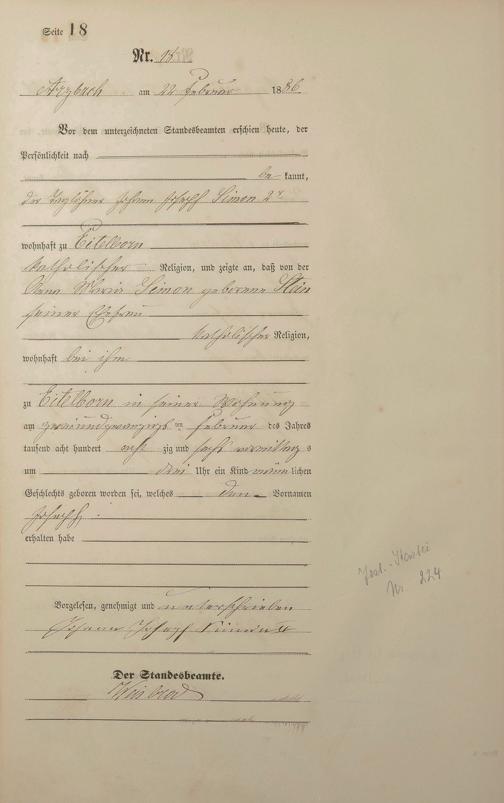 Seite 18
Nr. 15
Arzbach am 22 Februar 1886
Vor dem unterzeichneten Standesbeamten erschien heute, der
Persönlichkeit nach
be kannt,
der Taglöhner Johann Joseph Simon 2r
wohnhaft zu Eitelborn
katholischer Religion, und zeigte an, daß von der
Anna Maria Simon geborene Stein
seiner Ehefrau
katholischer Religion,
wohnhaft bei ihm
zu Eitelborn in seiner Wohnung
am zweiundzwanzigsten Februar des Jahres
tausend acht hundert acht zig und sechs vormittag s
um drei Uhr ein Kind männ lichen
Geschlechts geboren worden sei, welches den Vornamen
Joseph
erhalten habe
Vorgelesen, genehmigt und unterschrieben
Johann Joseph Simon
Der Standesbeamte.
Nr. 224